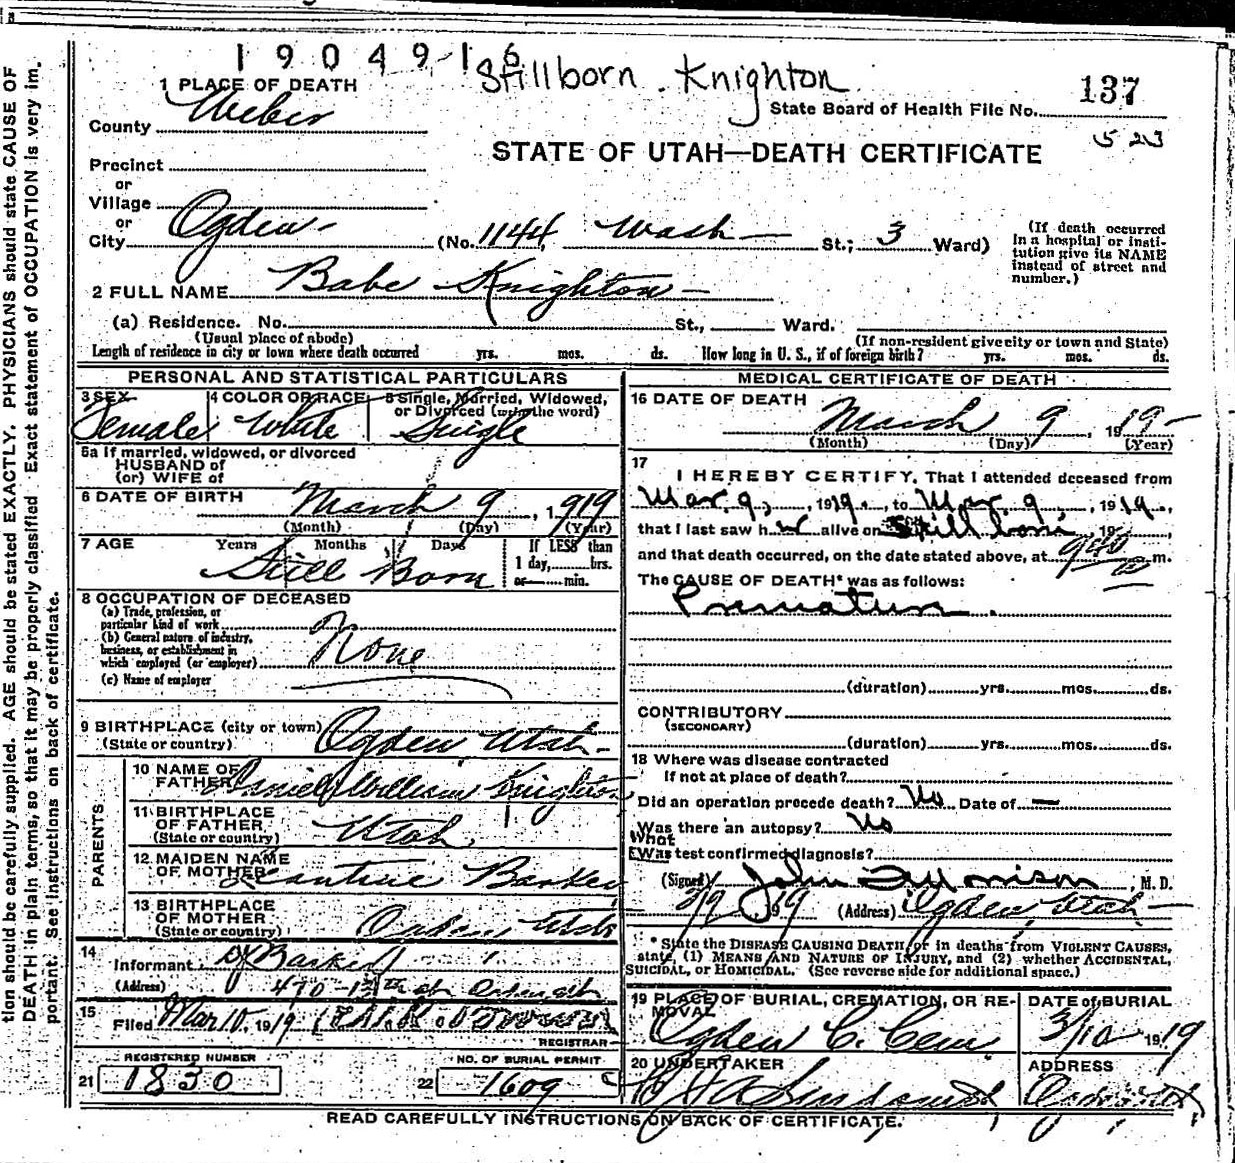 1904916
Stillborn Knighton
1 PLACE OF DEATH
State Board of Health File No. 137
County Weber
523
STATE OF UTAH—DEATH CERTIFICATE
Precinct
or
Village
or
City Ogden (No. 1144 Wash St.; 3 Ward)
(If death occurred in a hospital or insti-
tution give its NAME
instead of street and
number.)
2 FULL NAME Babe Knighton
(a) Residence. No. St., Ward.
(Usual place of abode) (If non-resident give city or town and State)
Length of residence in city or town where death occurred yrs. mos. ds. How long in U. S., if of foreign birth? yrs. mos. ds.
PERSONAL AND STATISTICAL PARTICULARS
3 SEX Female
4 COLOR OR RACE White
5 Single, Married, Widowed,
or Divorced (write the word)
Single
5a If married, widowed, or divorced
HUSBAND of
(or) WIFE of
6 DATE OF BIRTH March 9, 1919
(Month) (Day) (Year)
7 AGE Years Months Days If LESS than
1 day, hrs.
or min.
Still Born
8 OCCUPATION OF DECEASED
(a) Trade, profession, or
particular kind of work
(b) General nature of industry,
business, or establishment in
which employed (or employer)
None
(c) Name of employer
9 BIRTHPLACE (city or town) Ogden, Utah
(State or country)
PARENTS
10 NAME OF
FATHER Daniel William Knighton
11 BIRTHPLACE
OF FATHER
(State or country) Utah
12 MAIDEN NAME
OF MOTHER Barker
13 BIRTHPLACE
OF MOTHER
(State or country) Ogden Utah
14
Informant Barker
(Address) 470 - 12th st Ogden
15
Filed Mar 10, 1919
REGISTRAR
REGISTERED NUMBER
21 1830
NO. OF BURIAL PERMIT
22 1609
MEDICAL CERTIFICATE OF DEATH
16 DATE OF DEATH
March 9, 1919
(Month) (Day) (Year)
17
I HEREBY CERTIFY, That I attended deceased from
Mar. 9, 1919, to Mar. 9, 1919,
that I last saw her alive on Still born 19
and that death occurred, on the date stated above, at 940 a m.
The CAUSE OF DEATH* was as follows:
Premature.
(duration) yrs. mos. ds.
CONTRIBUTORY
(SECONDARY)
(duration) yrs. mos. ds.
18 Where was disease contracted
If not at place of death?
Did an operation precede death? No Date of —
Was there an autopsy? No
What
test confirmed diagnosis?
(Signed) John Morrison, M. D.
3/9 1919 (Address) Ogden, Utah
* State the DISEASE CAUSING DEATH, or in deaths from VIOLENT CAUSES,
state, (1) MEANS AND NATURE OF INJURY, and (2) whether ACCIDENTAL,
SUICIDAL, or HOMICIDAL. (See reverse side for additional space.)
19 PLACE OF BURIAL, CREMATION, OR RE-
MOVAL
Ogden C. Cem
DATE of BURIAL
3/10 1919
20 UNDERTAKER
ADDRESS
READ CAREFULLY INSTRUCTIONS ON BACK OF CERTIFICATE.
tion should be carefully supplied. AGE should be stated EXACTLY. PHYSICIANS should state CAUSE OF
DEATH in plain terms, so that it may be properly classified. Exact statement of OCCUPATION is very im-
portant. See instructions on back of certificate.